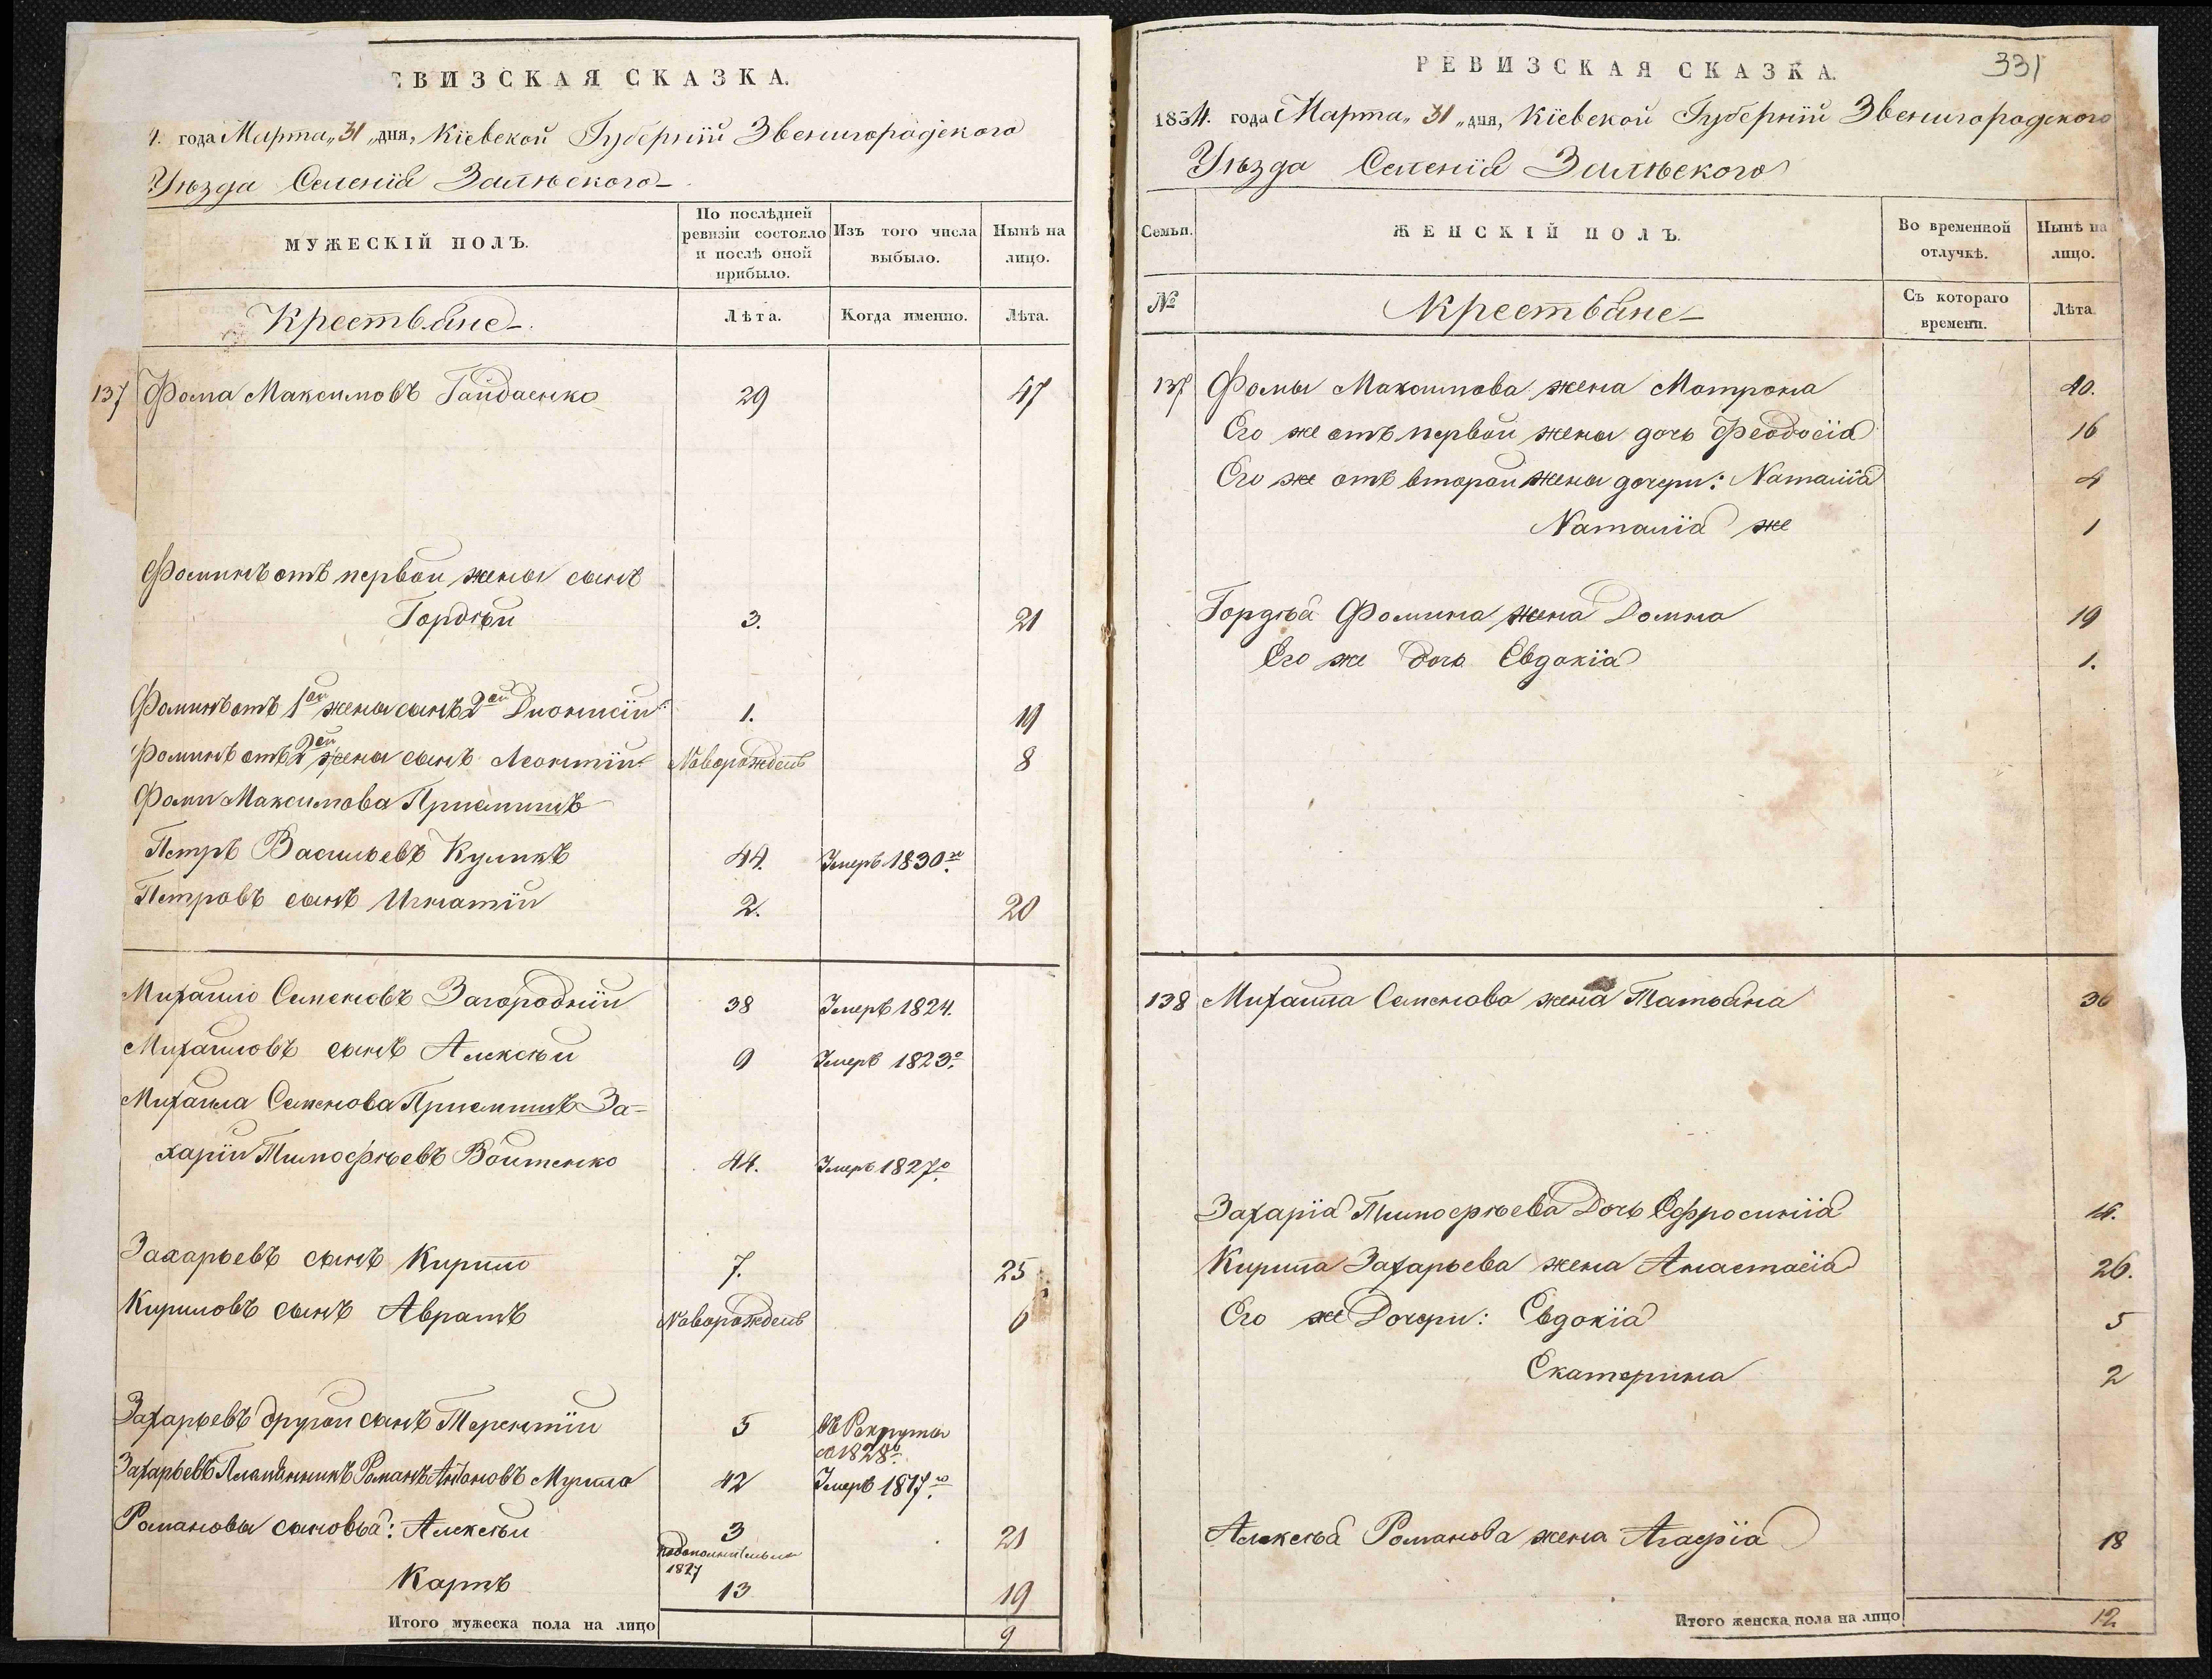 ЕВИЗСКАЯ СКАЗКА.
4. года Марта „31„ дня, Кіевской Губерніи Звенигородского
Уѣзда Селенія Залѣского
МУЖЕСКІЙ ПОЛЪ.
По послѣдней ревизіи состояло и послѣ оной прибыло.
Изъ того числа выбыло.
Нынѣ на лицо.
Крестьяне
Лѣта.
Когда именно.
Лѣта.
137 Фома Максимовъ Гайдаенко 29 47
Фоминъ отъ первой жены сынъ
Гордѣй 3. 21
Фоминъ отъ 1ой жены сынъ 2ой Дионисій 1. 19
Фоминъ отъ 2ой жены сынъ Леонтій Новорожденъ 8
Фомы Максимова Приемышъ
Петръ Васильевъ Куликъ 44. Умеръ 1830го
Петровъ сынъ Игнатій 2. 20
Михаило Семеновъ Загородній 38 Умеръ 1824.
Михайловъ сынъ Алексѣй 9 Умеръ 1823го
Михаила Семенова Приемышъ За=
харій Тимофѣевъ Войтенко 44. Умеръ 1827го
Захарьевъ сынъ Кирило 7. 25
Кириловъ сынъ Аврамъ Новорожденъ 6
Захарьевъ другой сынъ Терентій 5 въ Рекруты
со 1828го
Захарьевъ Племянникъ Романъ Антоновъ 42 Умеръ 1817го
Романовы сыновья: Алексѣй 3 21
1827
Карпъ 13 19
Итого мужеска пола на лицо 9
РЕВИЗСКАЯ СКАЗКА.
331
1834. года Марта „31„ дня, Кіевской Губерніи Звенигородского
Уѣзда Селенія Залѣского
Семьи.
ЖЕНСКІЙ ПОЛЪ.
Во временной отлучкѣ.
Нынѣ на лицо.
№
Крестьяне
Съ котораго времени.
Лѣта.
137 Фомы Максимова жена Матрона 40.
Его же отъ первой жены дочь Феодосія 16
Его же отъ второй жены дочери: Наталія 4
Наталія же 1
Гордѣя Фомина жена Домна 19
Его же дочь Евдокія 1.
138 Михаила Семенова жена Татьяна 36
Захарія Тимофѣева Дочь Ефросинія
Кирила Захарьева жена Анастасія 26.
Его же Дочери: Евдокія 5
Екатерина 2
Алексѣя Романова жена Агафія 18
Итого женска пола на лицо 12